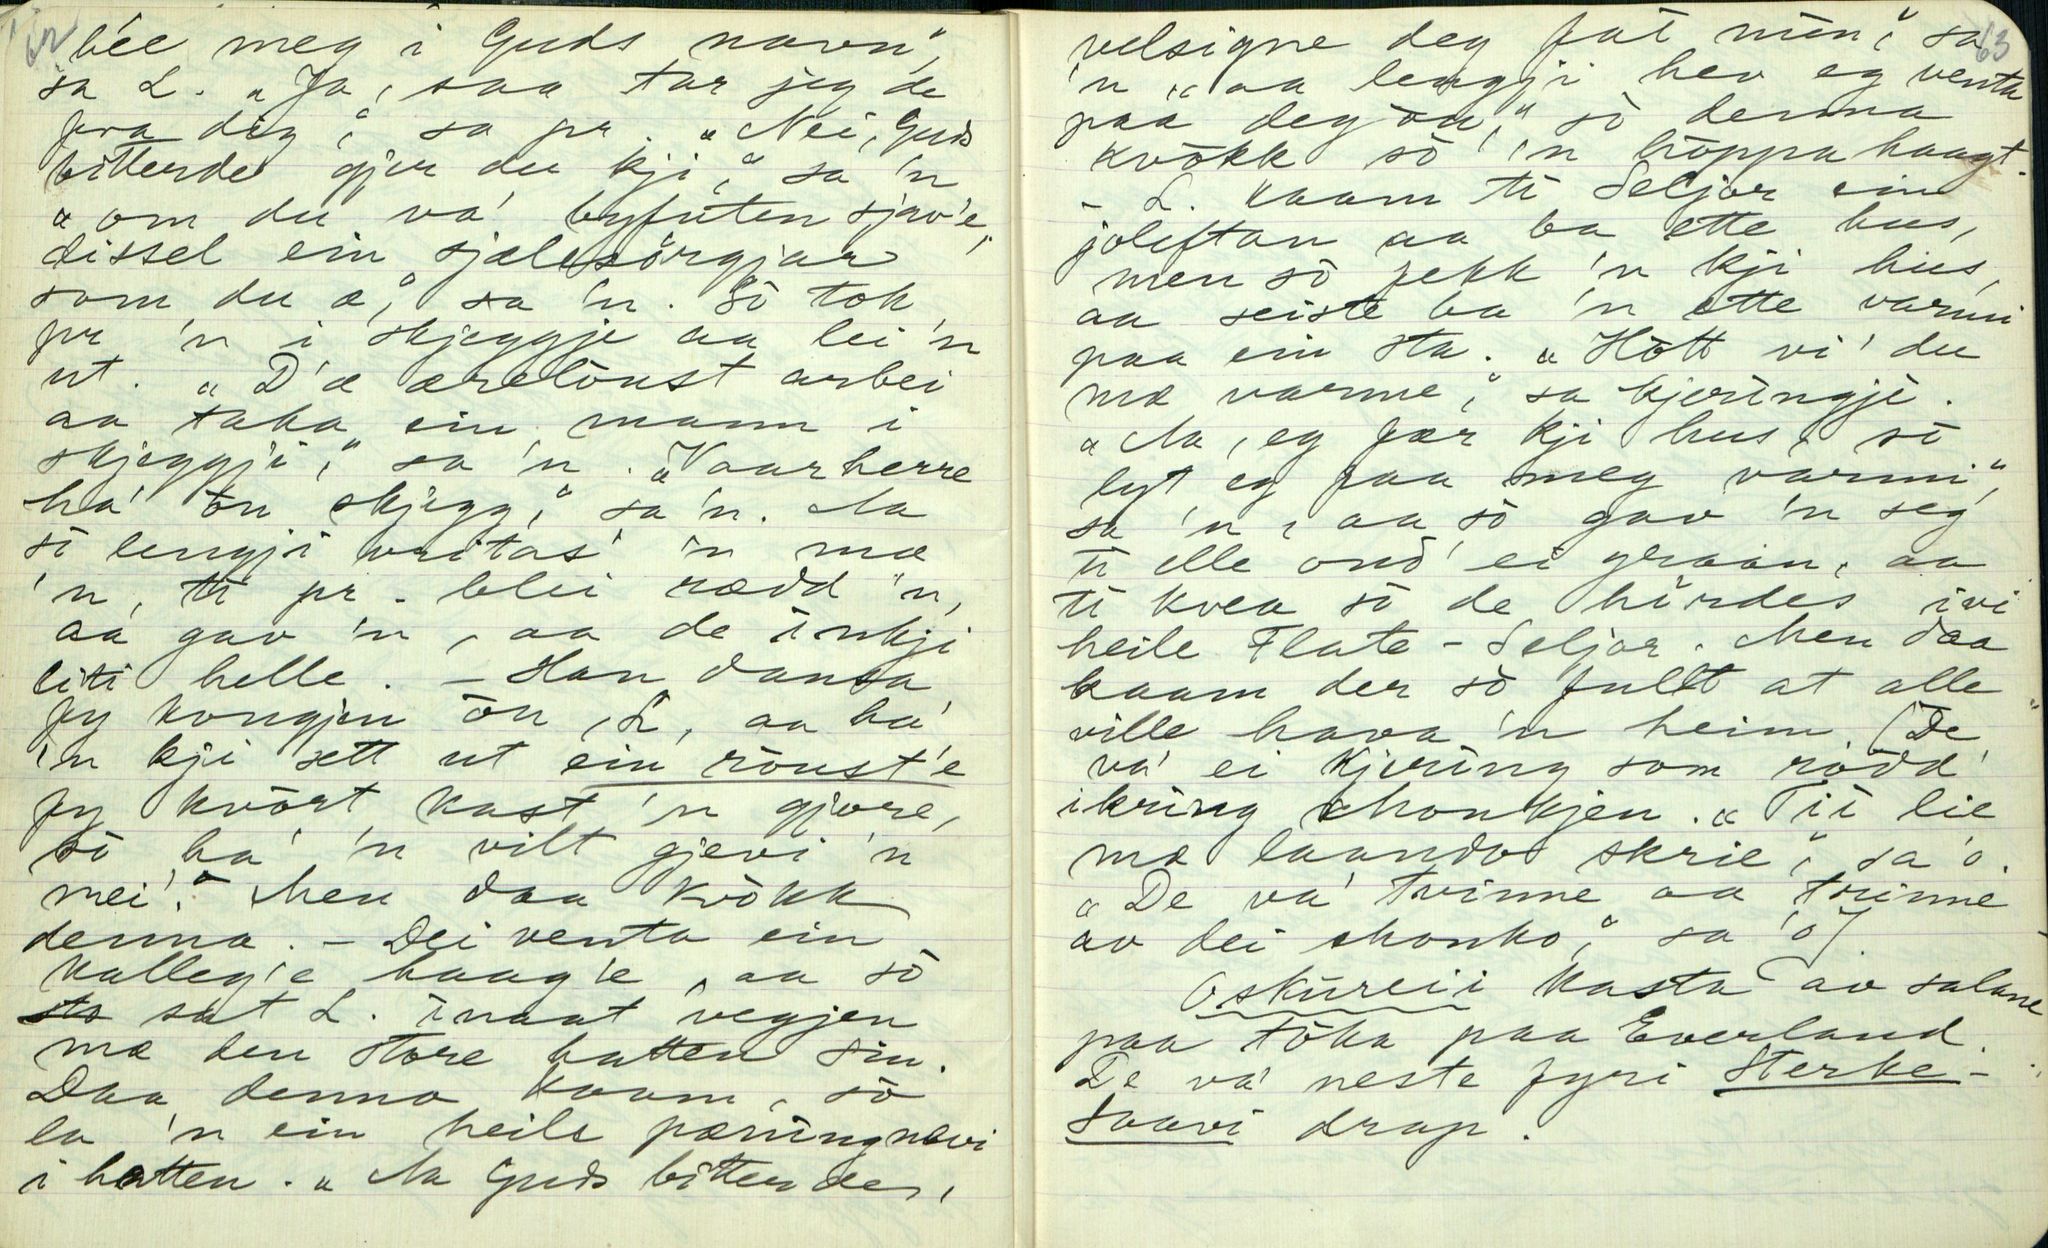 62
bée meg i Guds navn",
sa L. "Ja, saa tar jeg de
fra dig", sa pr. "Nei, Guds
bitterde gjer du kji", sa 'n
"om du va' byfuten sjøv'e,
dissel ein sjælesörgjar
som du æ", sa 'n. Sö tok
pr 'n i skjeggje aa lei 'n
ut. "D'æ ærelöust arbei
aa taka ein mann i
skjeggji," sa 'n. "Vaarherre
ha' òn skjegg," sa 'n. Aa
sö lengji vritas' 'n mæ
'n, ti pr. blei rædd 'n,
aa gav 'n, aa de inkji
liti helle. – Han dansa
fy kongjen òn, L, aa ha'
'n kji sett ut ein röust'e
fy kvòrt kast 'n gjore,
sò ha' 'n vilt gjevi 'n
mei'." Men daa kvòkk
denna. – Dei venta ein
kalleg'e haag'e, aa sò
sat L. inaat vegjen
mæ den store hatten sin.
Daa denna kaam, sò
la 'n ein heile pæningnevi
i hatten. "Aa Guds bitterdes,
63
velsigne deg fat min," sa
'n, "aa lengji hev eg venta
paa deg òn," sò denna
kvòkk sò 'n höppa haagt.
– L. kaam ti Seljor ein
joleftan aa ba ette hus,
men sò fekk 'n kji hus,
aa seiste ba 'n ette varmi
paa ein sta. "Hòtt vi' du
mæ varme," sa kjeringji.
"Aa, eg fær kji hus, sò
lyt eg faa meg varmi",
sa 'n, aa sò gav 'n seg
ti elle ond' ei graan, aa
ti kvea sò de hördes ivi
heile Flate-Seljor. Men daa
kaam der sò fullt at alle
ville hava 'n heim. (De
va' ei kjering som rödd'
ikring shonkjen. "Tii lie
mæ laando skrie", sa 'o.
"De va' tvinne aa trinne
av dei shonko", sa 'o)
Oskureii kasta av salane
paa töka paa Everland.
De va' neste fyri Sterke-
Saavi drap.